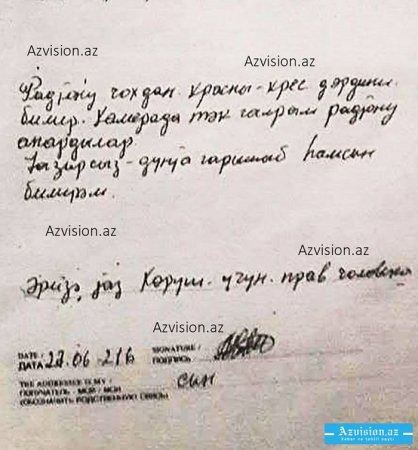 Azvision.az
Azvision.az
Радјону чохдан. Красны-крес дәрдини
билир. Камерада тәк галрым радјону
апардылар.
һазырсыз - дунја гаришаб һамсын
билирәм.
Azvision.az
Azvision.az
Әризә јаз Коруш. учун. прав человека
Azvision.az
DATE /
ДАТА 27.06
SIGNATURE /
ПОДПИСЬ /
THE ADDRESSEE IS MY /
ПОЛУЧАТЕЛЬ - МОЙ / МОЯ
(ОБОЗНАЧИТЬ РОДСТВЕННУЮ СВЯЗЬ)
сын
Azvision.az
Xəbər və təhlil saytı